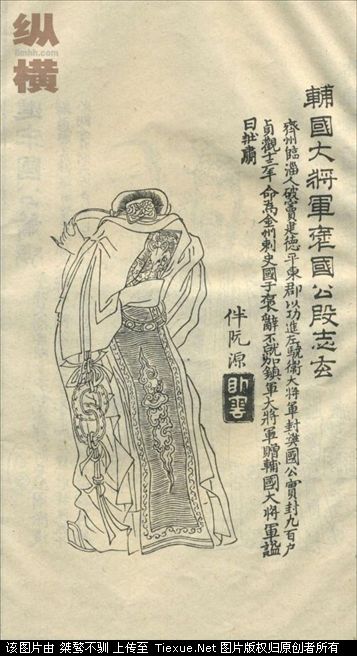 纵横
輔國大將軍褒國公段志玄
齊州臨淄人破竇建德平東都以功進左驍衛大將軍封樊國公實封九百戶
貞觀十二年命為金州刺史國于褒辭不就加鎮軍大將軍贈輔國大將軍謚
曰壯肅
伴阮源
该图片由 桀骜不驯 上传至 Tiexue.Net 图片版权归原创者所有